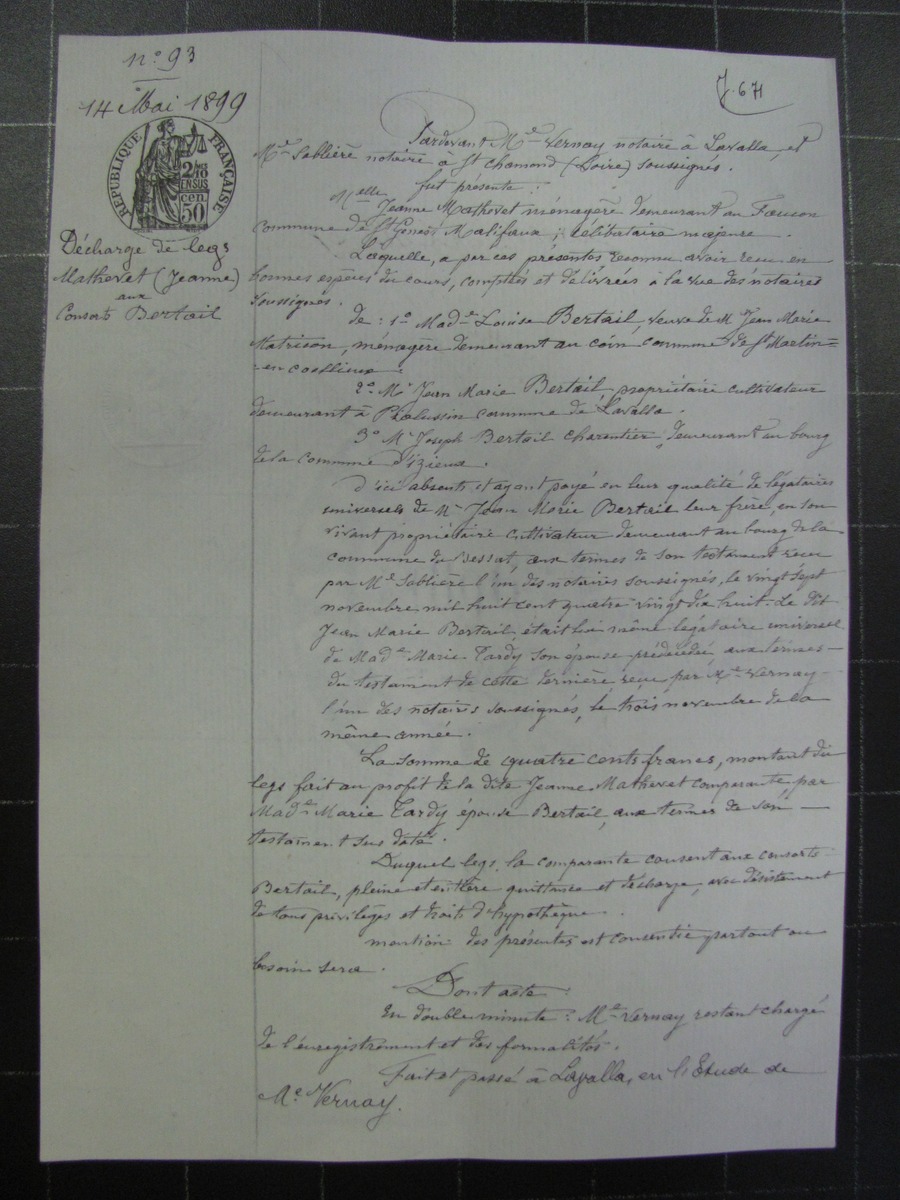 n° 93
14 Mai 1899
RÉPUBLIQUE FRANÇAISE
2/10
EN SUS
50 cen.
Décharge de legs
Mathevet (Jeanne)
aux
Consorts Bertail
J. 671
Pardevant Me Vernay notaire à Lavalla, et
Me Sablière notaire à St Chamond (Loire) soussignés.
fut présente :
Melle Jeanne Mathevet ménagère demeurant au Faucon
commune de St Genest Malifaux ; célibataire majeure.
Laquelle, a par ces présentes reconnu avoir reçu en
bonnes espèces du cours, comptées et délivrées à la vue des notaires
soussignés.
de : 1° Made Louise Bertail, veuve de M. Jean Marie
Matricon, ménagère demeurant au coin commune de St Martin=
=en coallieux :
2° Mr Jean Marie Bertail, propriétaire cultivateur
demeurant à Palussin commune de Lavalla.
3° Mr Joseph Bertail charpentier, demeurant au bourg
de la commune d'izieux.
d'ici absents et ayant payé en leur qualité de légataires
universels de Mr Jean Marie Bertail leur frère, en son
vivant propriétaire cultivateur demeurant au bourg de la
commune du Bessat, aux termes de son testament reçu
par Me Sablière l'un des notaires soussignés, le vingt sept
novembre mil huit cent quatre vingt dix huit. Le dit
Jean Marie Bertail, était lui même légataire universel
de Made Marie Tardy son épouse prédécédée aux termes
du testament de cette dernière reçu par Me Vernay
l'un des notaires soussignés, le trois novembre de la
même année.
La somme de quatre cents francs, montant du
legs fait au profit de la dite Jeanne Mathevet comparante par
Made Marie Tardy épouse Bertail, aux termes de son
testament sus daté.
Duquel legs, la comparante consent aux consorts
Bertail, pleine et entière quittance et décharge, avec désistement
de tous privilèges et droits d'hypothèque.
mention des présentes est consentie partout ou
besoin sera.
Dont acte :
En double minute : Me Vernay restant chargé
de l'enregistrement et des formalités.
Fait et passé à Lavalla, en l'Etude de
Me Vernay.